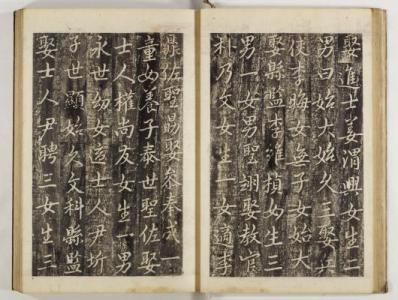 娶進士姜渭興女生二
男曰始大始久三娶
使李晦女無子女始大
娶縣監李維楨女生三
男一女男聖翊娶教官
朴乃文女生一女適李
鼎佐聖賜娶參奉成一
童女養子泰世聖佐娶
士人權尚友女生一男
永世幼女適士人尹圻
子世顯始久文科縣監
娶士人尹聘三女生三